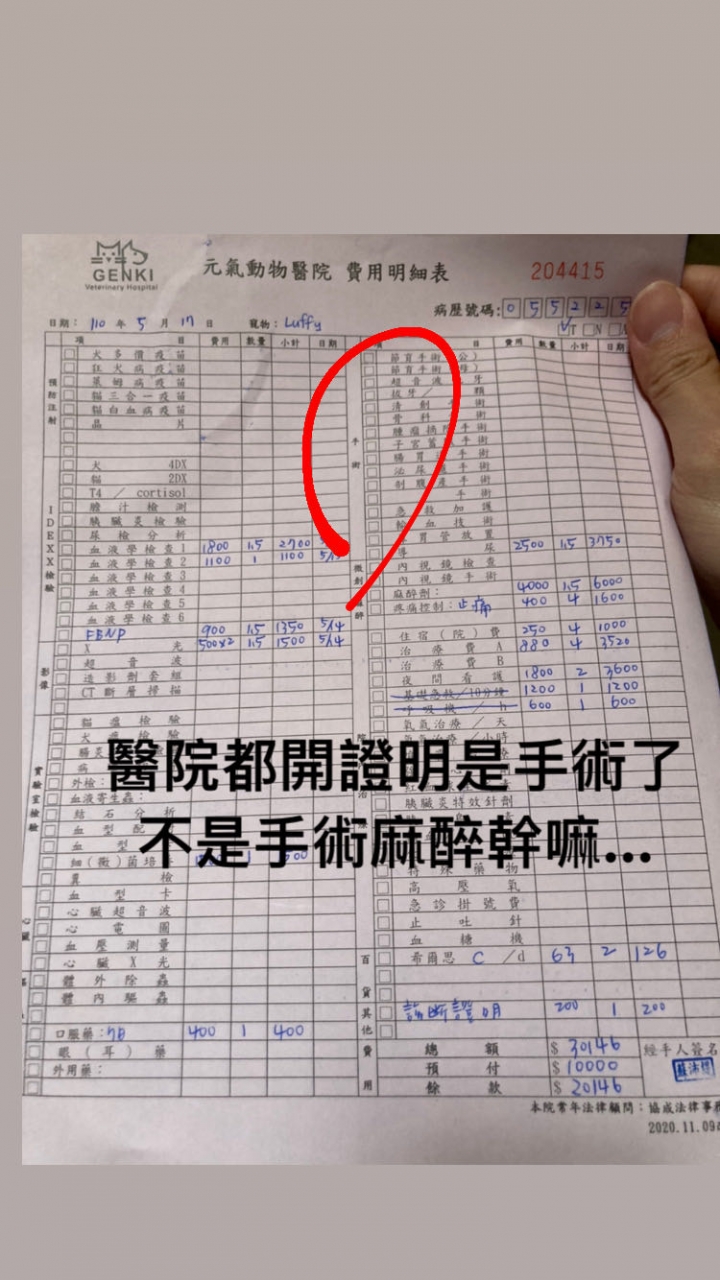 GENKI
Veterinary Hospital
元氣動物醫院 費用明細表
204415
病歷號碼: 055225
日期: 110 年 5 月 17 日 寵物: Luffy
項 目 費用 數量 小計 日期
目 費用 數量 小計 日期
預防注射
犬多價疫苗
狂犬病疫苗
萊姆病疫苗
貓三合一疫苗
貓白血病疫苗
晶 片
IDEXX檢驗
犬 4DX
貓 2DX
T4 / cortisol
膽汁檢測
胰臟炎檢驗
尿檢分析
血液學檢查1 1800 1.5 2700
血液學檢查2 1100 1 1100
血液學檢查3
血液學檢查4
血液學檢查5
血液學檢查6
900 1.5 1350 5/14
影像
X 光 500x2 1.5 1500 5/14
超音波
造影劑套組
CT斷層掃描
實驗室檢驗
貓瘟檢驗
犬瘟檢驗
外檢:
血液寄生蟲:
結石分析
血型配
血型
糞 檢
血型卡
心臟超音波
心電圖
血壓測量
心臟X光
體外除蟲
體內驅蟲
口服藥: 7B 400 1 400
眼(耳)藥
外用藥:
手術
節育手術(公)
節育手術
超音波 牙
拔牙/ 顆
清創手術
骨科 術
腫瘤摘除手術
子宮蓄 手術
腸胃 手術
泌尿 手術
剖腹產手術
手術
急救加護
輸血技術
胃管放置
導 尿 2500 1.5 3750
內視鏡檢查
內視鏡手術
麻醉劑: 4000 1.5 6000
疼痛控制: 止痛 400 4 1600
住宿(院)費 250 4 1000
治療費A 880 4 3520
治療費B
夜間看護 1800 2 3600
基礎急救/10分鐘 1200 1 1200
呼吸機/h 600 1 600
氧氣治療/天
醫院都開證明是手術了
不是手術麻醉幹嘛...
胰臟炎特效針劑
特殊藥物
高壓氧
急診掛號費
止吐針
血糖機
希爾思 C/d 63 2 126
百貨
其他
診斷證明 200 1 200
費用
總額 $ 30146
預付 $ 10000
餘款 $ 20146
經手人簽名
本院常年法律顧問:協成法律事務
2020.11.09